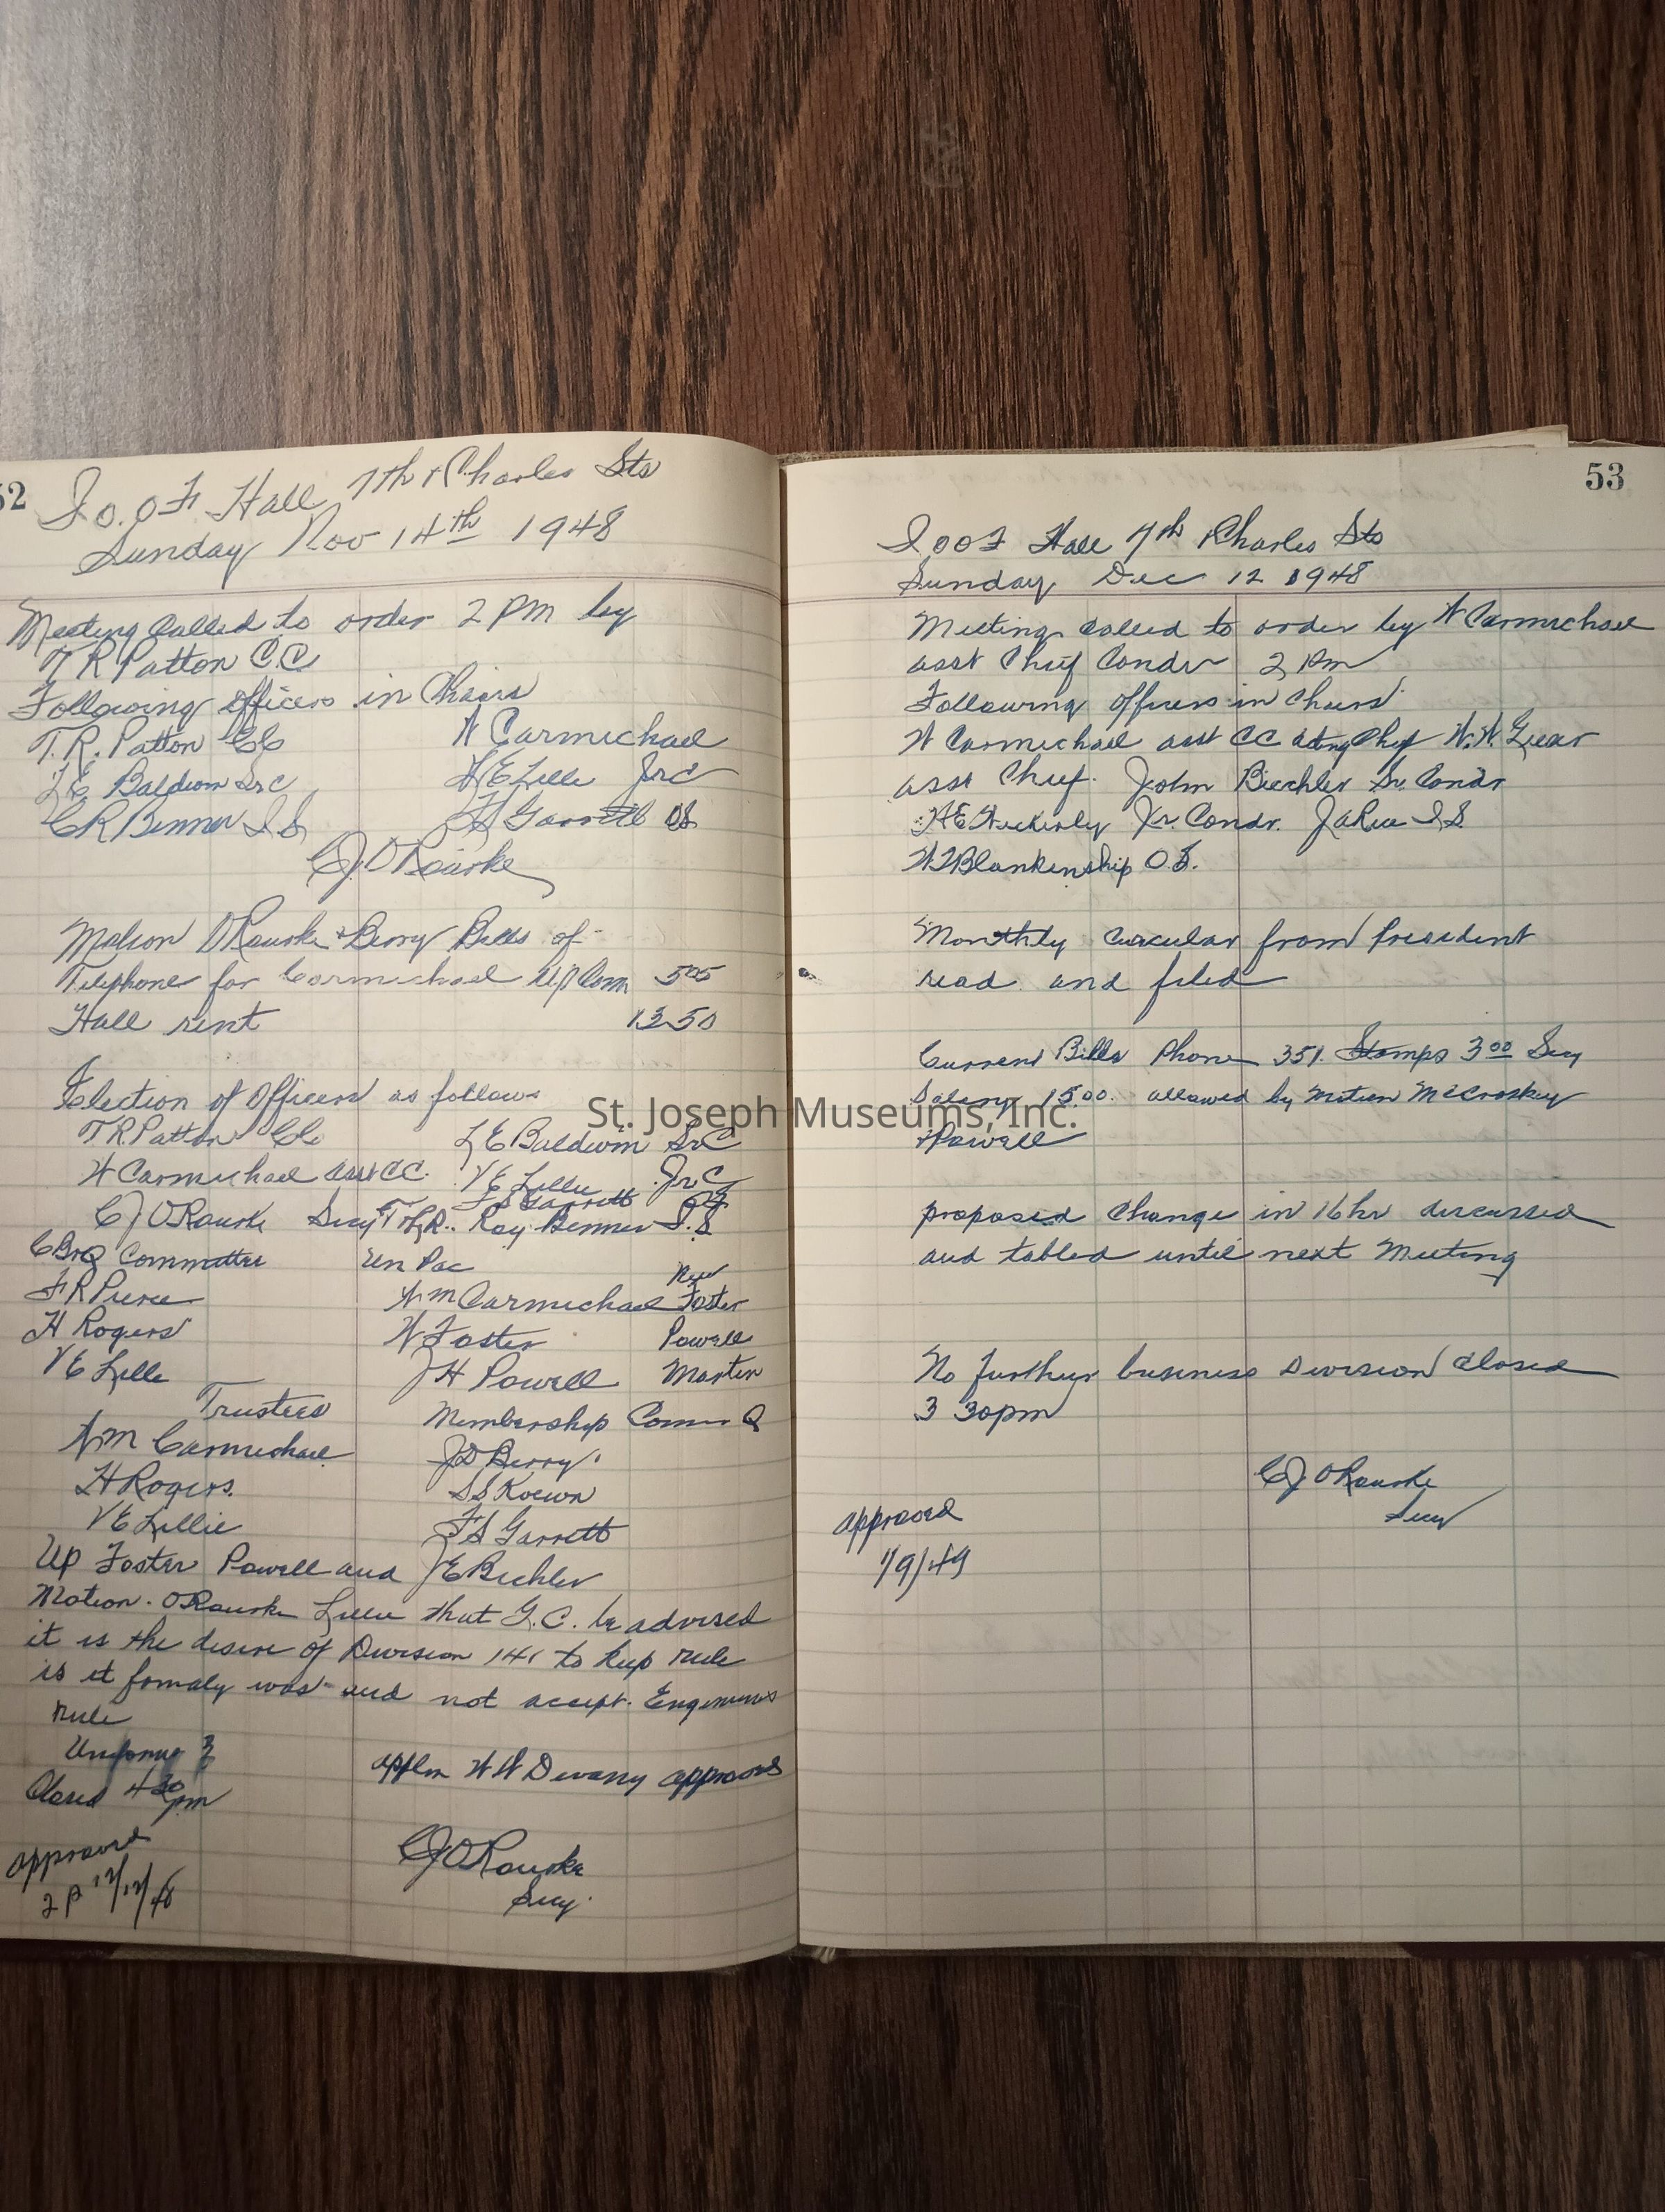 52
I.O.O.F Hall 7th & Charles Sts
Sunday Nov 14th 1948
Meeting Called to order 2 PM by
T R Patton C.C
Following officers in Chairs
T. R. Patton CC W Carmichael
L E Baldwin SrC V E Lille JrC
C R Benner I S F S Garrett OS
C J O Rourke
Motion O Rourke & Berry Bills of
Telephone for Carmichael U P Com 5 05
Hall rent 12 50
Election of Officers as follows
T R Patton CC L E Baldwin SrC
W Carmichael asst CC. V E Lillie JrC
F S Garrett OS
C J O Rourke Secy Ray Benner I. S
CB&Q Committee Un Pac New
F R Pierce Wm Carmichael Foster
H Rogers W Foster Powell
V E Lille J H Powell Martin
Trustees Membership Comm Q
Wm Carmichael J D Berry
H Rogers. S S Koewn
V E Lillie F S Garrett
UP Foster Powell and J E Bechler
Motion. O Rourke Lillie that G. C. be advised
it is the desire of Division 141 to keep rule
is it fomaly was and not accept. Engineers
rule
appln W W Devorry approved
Closed 4 30 pm
C J O Rourke
Secy.
approved
12/12/48
53
I O O F Hall 7th & Charles Sts
Sunday Dec 12 1948
Meeting called to order by W Carmichael
asst Chief Condr 2 Pm
Following officers in Chairs
W Carmichael asst CC acting Chief W. W.
asst Chief. John Biechler Sr. Condr
Jr. Condr. J a Rue I S.
W F Blankenship O. S.
Monthly circular from President
read and filed
Current Bills Phone 351. Stamps 3 00 Secy
Salary 15.00. allowed by motion McCroskey
& Powell
proposed Change in 16 hr discussed
and tabled until next Meeting
No further business Division Closed
3 30pm
C J O Rourke
Secy
approved
1/9/49
St. Joseph Museums, Inc.